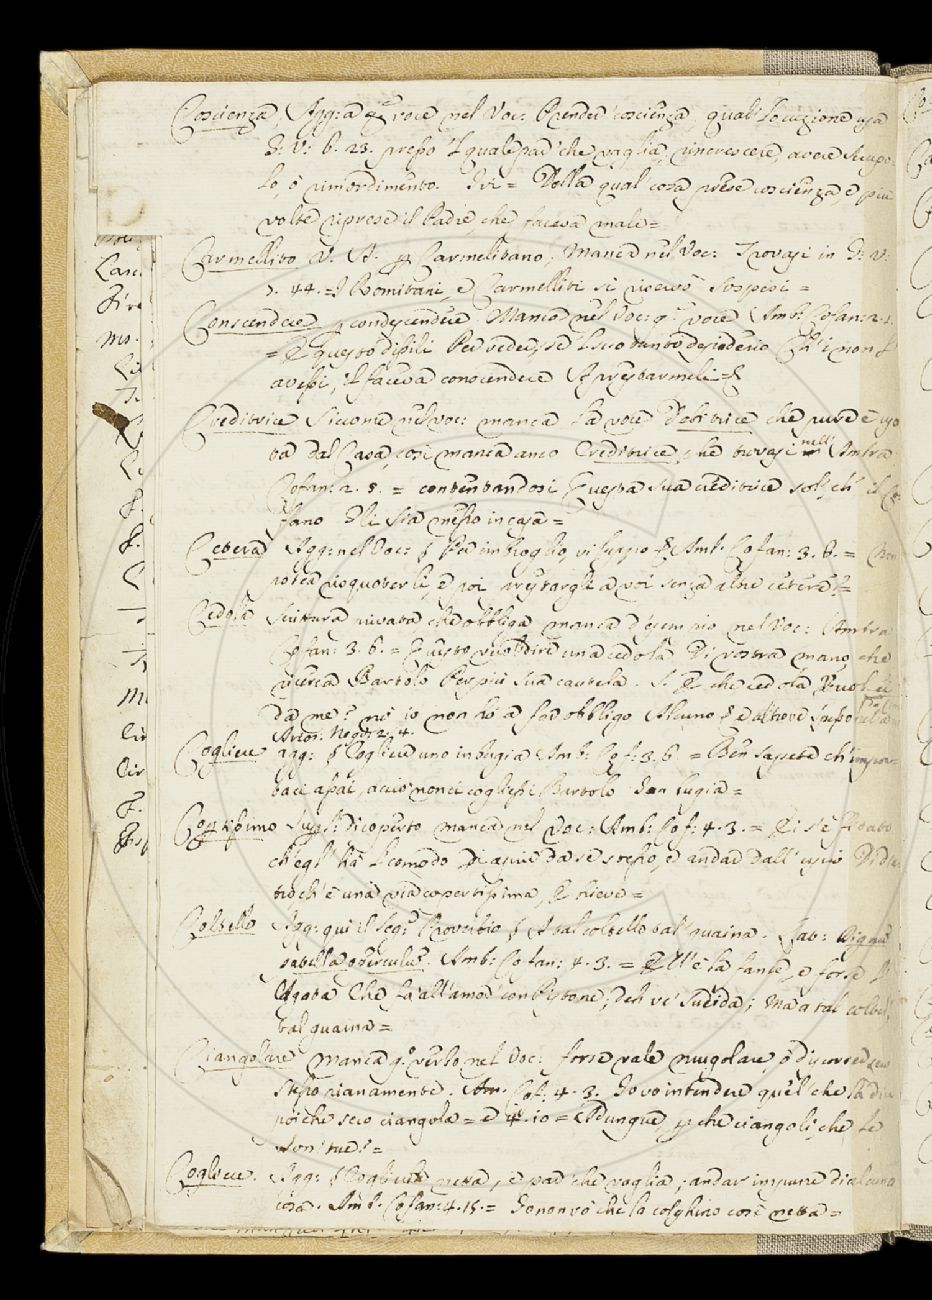 Coscienza Agg: a q.ª voce nel Voc: Prender coscienza, qual locuzione usa
G: V: 6. 23. presso 'l quale par che vaglia, rincrescere, avere scrupo-
lo, ò rimordimento. Ivi = Della qual cosa prese coscienza, e più
volte riprese il Padre, che faceva male=
Carmellito V. A. p Carmelitano, Manca nel Voc: Trovasi in G: V:
7. 44. = I Romitani, e Carmelliti si sospesi =
Conscendere p condescendere. Manca nel Voc: q.ª voce Amb: Cofan: 2. 1.
= E questo dissili Per veder, se 'l suo tanto desiderio Ch' i' non l'
avessi, 'l faceva conscendere A prestarmeli =
Creditrice Siccome nel voc: manca la voce Debitrice che pure è usa
ta dal Casa, così manca anco Creditrice, che trovasi nell' Ambra
Cofan: 2. 5. = contentandosi questa sua creditrice sol, ch' il
fano Gli sia messo in casa =
Cetera Agg: nel Voc: § Per imbroglio, Amb. Cofan: 3. 8. =
potea risquoterli, e poi prestargli a voi senza altre cetere? =
Cedola Scrittura privata che obbliga manca d'esempio nel Voc: Ambra
Cofan: 3. 6. = Questo vuol dire una cedola Di vostra mano, che
ricerca Bartolo Per più sua cautela. S. E che cedola Vuol ei
da me? mi io non hò a far obbligo Alcuno § e altrove
Cogliere agg: § Cogliere uno in bugia Amb: Cof: 3. 6. = Ben sapete ch' impor-
baci assai, acciò non ci cogliessi Bartolo in bugia =
Copertissimo Superl: di coperto manca nel Voc: Amb: Cof: 4. 3. = Ei s'è fidato
ch' egl' hà 'l comodo Di aprir da se stesso, e andar dall' uscio Di die
tro ch' è una via copertissima, E breve =
Coltello Agg: qui il seg.te Proverbio § A tal coltello tal guaina. Lat: Dignu
patella operculu. Amb: Cofan: 4. 3. = Ell' è la fante, e forse l'
Agata Che fa all' amor con Pistone; deh ve' sucida; Ma a tal coltel,
tal guaina =
Ciangolare manca q.º verbo nel Voc: forse vale mugolare, ò discorrer seco
stesso pianamente. Am. Cof. 4. 3. Io vo intendere quel che la dice
poiche seco ciangola = e 4. 10 = Adunque, p che ciangoli, che le
son tue? =
Cogliere. Agg: § Cogliere netta, e par che vaglia, andar impune di alcuna
cosa. Amb. Cofan: 4. 15. = Io non vò che la colghino così netta =